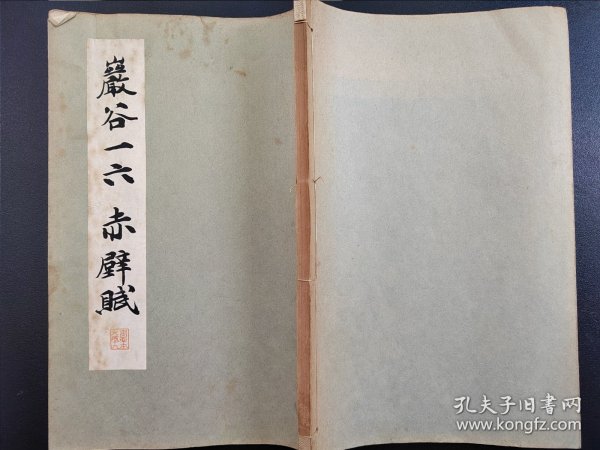 巖谷一六 赤壁賦
孔夫子旧书网
www.kongfz.com